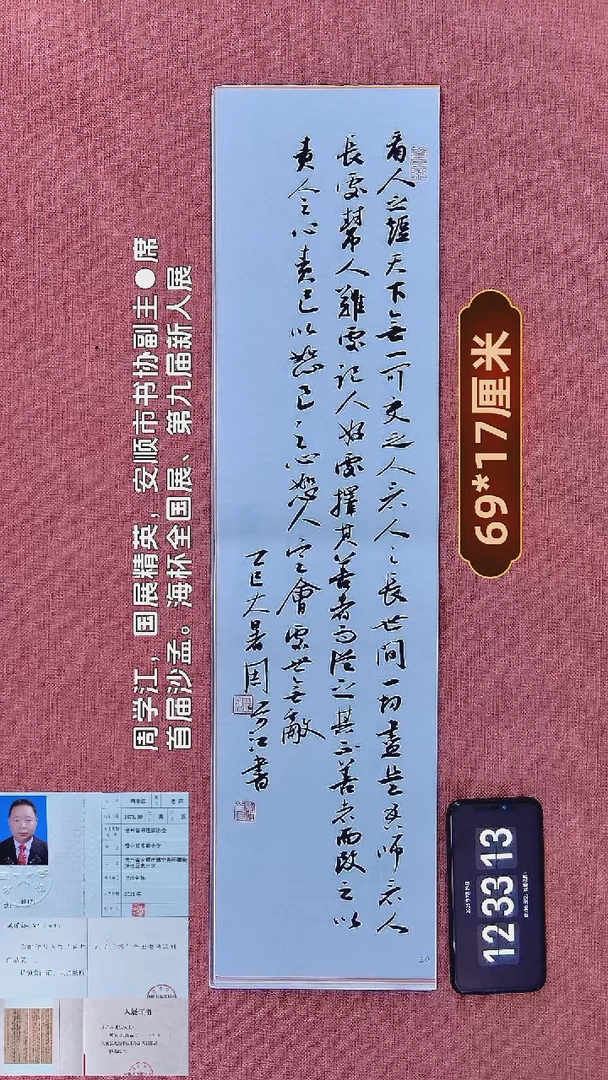 看人之短天下無一可交之人看人之長世間一切盡是吾師看人
長處幫人難處記人好處擇其善者而從之其不善者而改之以
責人之心責己以恕己之心恕人定會處世無敵
乙巳大暑周學江書
周学江，国展精英，安顺市书协副主●席
首届沙孟。海杯全国展、第九届新人展
69*17厘米
12 33 13
入展证书